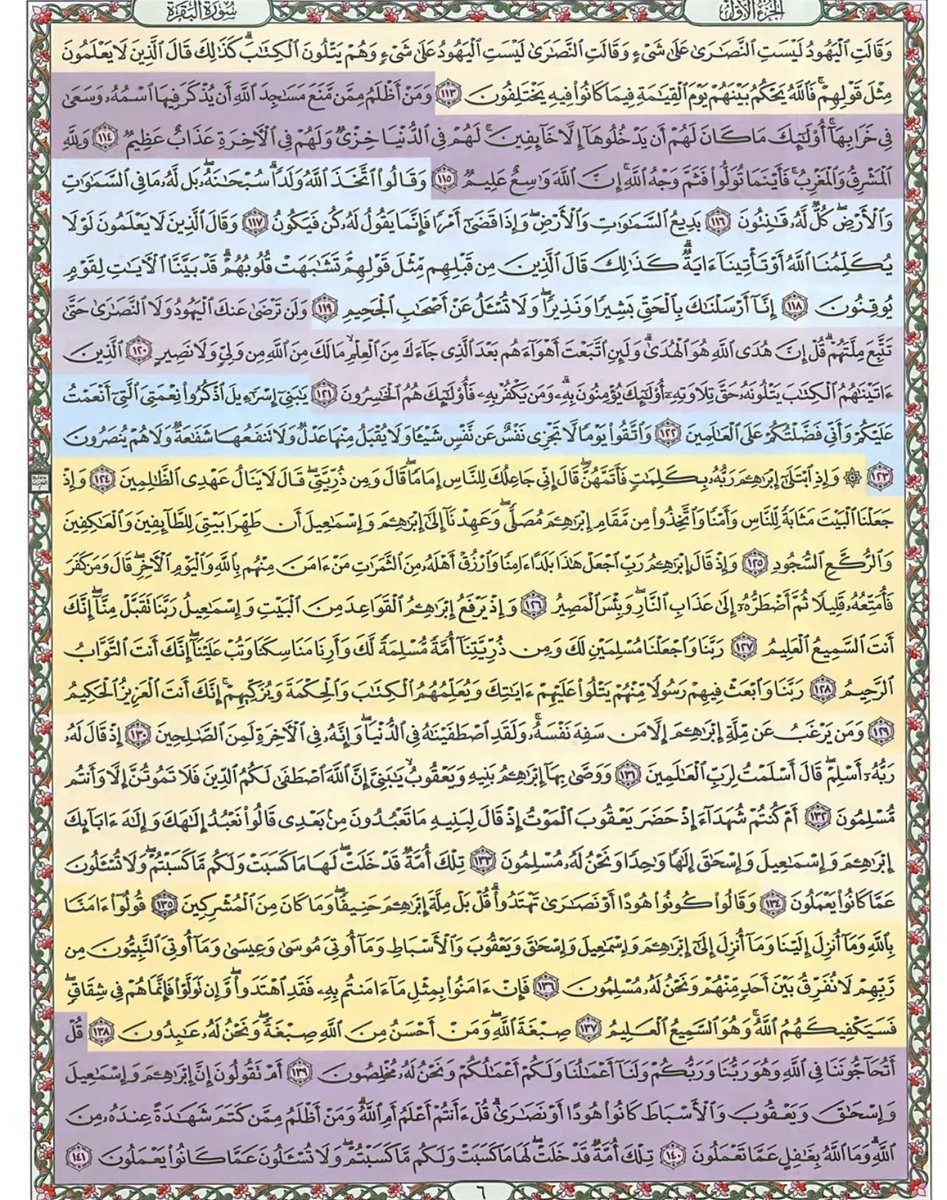 الجزء الأول
سورة البقرة
وَقَالَتِ الْيَهُودُ لَيْسَتِ النَّصَارَىٰ عَلَىٰ شَيْءٍ وَقَالَتِ النَّصَارَىٰ لَيْسَتِ الْيَهُودُ عَلَىٰ شَيْءٍ وَهُمْ يَتْلُونَ الْكِتَابَ ۗ كَذَٰلِكَ قَالَ الَّذِينَ لَا يَعْلَمُونَ
مِثْلَ قَوْلِهِمْ ۚ فَاللَّهُ يَحْكُمُ بَيْنَهُمْ يَوْمَ الْقِيَامَةِ فِيمَا كَانُوا فِيهِ يَخْتَلِفُونَ ١١٣ وَمَنْ أَظْلَمُ مِمَّن مَّنَعَ مَسَاجِدَ اللَّهِ أَن يُذْكَرَ فِيهَا اسْمُهُ وَسَعَىٰ
فِي خَرَابِهَا ۚ أُولَٰئِكَ مَا كَانَ لَهُمْ أَن يَدْخُلُوهَا إِلَّا خَائِفِينَ ۚ لَهُمْ فِي الدُّنْيَا خِزْيٌ وَلَهُمْ فِي الْآخِرَةِ عَذَابٌ عَظِيمٌ ١١٤ وَلِلَّهِ
الْمَشْرِقُ وَالْمَغْرِبُ ۚ فَأَيْنَمَا تُوَلُّوا فَثَمَّ وَجْهُ اللَّهِ ۚ إِنَّ اللَّهَ وَاسِعٌ عَلِيمٌ ١١٥ وَقَالُوا اتَّخَذَ اللَّهُ وَلَدًا ۗ سُبْحَانَهُ ۖ بَل لَّهُ مَا فِي السَّمَاوَاتِ
وَالْأَرْضِ ۖ كُلٌّ لَّهُ قَانِتُونَ ١١٦ بَدِيعُ السَّمَاوَاتِ وَالْأَرْضِ ۖ وَإِذَا قَضَىٰ أَمْرًا فَإِنَّمَا يَقُولُ لَهُ كُن فَيَكُونُ ١١٧ وَقَالَ الَّذِينَ لَا يَعْلَمُونَ لَوْلَا
يُكَلِّمُنَا اللَّهُ أَوْ تَأْتِينَا آيَةٌ ۗ كَذَٰلِكَ قَالَ الَّذِينَ مِن قَبْلِهِم مِّثْلَ قَوْلِهِمْ ۘ تَشَابَهَتْ قُلُوبُهُمْ ۗ قَدْ بَيَّنَّا الْآيَاتِ لِقَوْمٍ
يُوقِنُونَ ١١٨ إِنَّا أَرْسَلْنَاكَ بِالْحَقِّ بَشِيرًا وَنَذِيرًا ۖ وَلَا تُسْأَلُ عَنْ أَصْحَابِ الْجَحِيمِ ١١٩ وَلَن تَرْضَىٰ عَنكَ الْيَهُودُ وَلَا النَّصَارَىٰ حَتَّىٰ
تَتَّبِعَ مِلَّتَهُمْ ۗ قُلْ إِنَّ هُدَى اللَّهِ هُوَ الْهُدَىٰ ۗ وَلَئِنِ اتَّبَعْتَ أَهْوَاءَهُم بَعْدَ الَّذِي جَاءَكَ مِنَ الْعِلْمِ ۙ مَا لَكَ مِنَ اللَّهِ مِن وَلِيٍّ وَلَا نَصِيرٍ ١٢٠ الَّذِينَ
آتَيْنَاهُمُ الْكِتَابَ يَتْلُونَهُ حَقَّ تِلَاوَتِهِ أُولَٰئِكَ يُؤْمِنُونَ بِهِ ۗ وَمَن يَكْفُرْ بِهِ فَأُولَٰئِكَ هُمُ الْخَاسِرُونَ ١٢١ يَا بَنِي إِسْرَائِيلَ اذْكُرُوا نِعْمَتِيَ الَّتِي أَنْعَمْتُ
عَلَيْكُمْ وَأَنِّي فَضَّلْتُكُمْ عَلَى الْعَالَمِينَ ١٢٢ وَاتَّقُوا يَوْمًا لَّا تَجْزِي نَفْسٌ عَن نَّفْسٍ شَيْئًا وَلَا يُقْبَلُ مِنْهَا عَدْلٌ وَلَا تَنفَعُهَا شَفَاعَةٌ وَلَا هُمْ يُنصَرُونَ
١٢٣ ۞ وَإِذِ ابْتَلَىٰ إِبْرَاهِيمَ رَبُّهُ بِكَلِمَاتٍ فَأَتَمَّهُنَّ ۖ قَالَ إِنِّي جَاعِلُكَ لِلنَّاسِ إِمَامًا ۖ قَالَ وَمِن ذُرِّيَّتِي ۖ قَالَ لَا يَنَالُ عَهْدِي الظَّالِمِينَ ١٢٤ وَإِذْ
جَعَلْنَا الْبَيْتَ مَثَابَةً لِّلنَّاسِ وَأَمْنًا وَاتَّخِذُوا مِن مَّقَامِ إِبْرَاهِيمَ مُصَلًّى ۖ وَعَهِدْنَا إِلَىٰ إِبْرَاهِيمَ وَإِسْمَاعِيلَ أَن طَهِّرَا بَيْتِيَ لِلطَّائِفِينَ وَالْعَاكِفِينَ
وَالرُّكَّعِ السُّجُودِ ١٢٥ وَإِذْ قَالَ إِبْرَاهِيمُ رَبِّ اجْعَلْ هَٰذَا بَلَدًا آمِنًا وَارْزُقْ أَهْلَهُ مِنَ الثَّمَرَاتِ مَنْ آمَنَ مِنْهُم بِاللَّهِ وَالْيَوْمِ الْآخِرِ ۖ قَالَ وَمَن كَفَرَ
فَأُمَتِّعُهُ قَلِيلًا ثُمَّ أَضْطَرُّهُ إِلَىٰ عَذَابِ النَّارِ ۖ وَبِئْسَ الْمَصِيرُ ١٢٦ وَإِذْ يَرْفَعُ إِبْرَاهِيمُ الْقَوَاعِدَ مِنَ الْبَيْتِ وَإِسْمَاعِيلُ رَبَّنَا تَقَبَّلْ مِنَّا ۖ إِنَّكَ
أَنتَ السَّمِيعُ الْعَلِيمُ ١٢٧ رَبَّنَا وَاجْعَلْنَا مُسْلِمَيْنِ لَكَ وَمِن ذُرِّيَّتِنَا أُمَّةً مُّسْلِمَةً لَّكَ وَأَرِنَا مَنَاسِكَنَا وَتُبْ عَلَيْنَا ۖ إِنَّكَ أَنتَ التَّوَّابُ
الرَّحِيمُ ١٢٨ رَبَّنَا وَابْعَثْ فِيهِمْ رَسُولًا مِّنْهُمْ يَتْلُو عَلَيْهِمْ آيَاتِكَ وَيُعَلِّمُهُمُ الْكِتَابَ وَالْحِكْمَةَ وَيُزَكِّيهِمْ ۚ إِنَّكَ أَنتَ الْعَزِيزُ الْحَكِيمُ
١٢٩ وَمَن يَرْغَبُ عَن مِّلَّةِ إِبْرَاهِيمَ إِلَّا مَن سَفِهَ نَفْسَهُ ۚ وَلَقَدِ اصْطَفَيْنَاهُ فِي الدُّنْيَا ۖ وَإِنَّهُ فِي الْآخِرَةِ لَمِنَ الصَّالِحِينَ ١٣٠ إِذْ قَالَ لَهُ
رَبُّهُ أَسْلِمْ ۖ قَالَ أَسْلَمْتُ لِرَبِّ الْعَالَمِينَ ١٣١ وَوَصَّىٰ بِهَا إِبْرَاهِيمُ بَنِيهِ وَيَعْقُوبُ يَا بَنِيَّ إِنَّ اللَّهَ اصْطَفَىٰ لَكُمُ الدِّينَ فَلَا تَمُوتُنَّ إِلَّا وَأَنتُم
مُّسْلِمُونَ ١٣٢ أَمْ كُنتُمْ شُهَدَاءَ إِذْ حَضَرَ يَعْقُوبَ الْمَوْتُ إِذْ قَالَ لِبَنِيهِ مَا تَعْبُدُونَ مِن بَعْدِي قَالُوا نَعْبُدُ إِلَٰهَكَ وَإِلَٰهَ آبَائِكَ
إِبْرَاهِيمَ وَإِسْمَاعِيلَ وَإِسْحَاقَ إِلَٰهًا وَاحِدًا وَنَحْنُ لَهُ مُسْلِمُونَ ١٣٣ تِلْكَ أُمَّةٌ قَدْ خَلَتْ ۖ لَهَا مَا كَسَبَتْ وَلَكُم مَّا كَسَبْتُمْ ۖ وَلَا تُسْأَلُونَ
عَمَّا كَانُوا يَعْمَلُونَ ١٣٤ وَقَالُوا كُونُوا هُودًا أَوْ نَصَارَىٰ تَهْتَدُوا ۗ قُلْ بَلْ مِلَّةَ إِبْرَاهِيمَ حَنِيفًا ۖ وَمَا كَانَ مِنَ الْمُشْرِكِينَ ١٣٥ قُولُوا آمَنَّا
بِاللَّهِ وَمَا أُنزِلَ إِلَيْنَا وَمَا أُنزِلَ إِلَىٰ إِبْرَاهِيمَ وَإِسْمَاعِيلَ وَإِسْحَاقَ وَيَعْقُوبَ وَالْأَسْبَاطِ وَمَا أُوتِيَ مُوسَىٰ وَعِيسَىٰ وَمَا أُوتِيَ النَّبِيُّونَ مِن
رَّبِّهِمْ لَا نُفَرِّقُ بَيْنَ أَحَدٍ مِّنْهُمْ وَنَحْنُ لَهُ مُسْلِمُونَ ١٣٦ فَإِنْ آمَنُوا بِمِثْلِ مَا آمَنتُم بِهِ فَقَدِ اهْتَدَوا ۖ وَّإِن تَوَلَّوْا فَإِنَّمَا هُمْ فِي شِقَاقٍ ۖ
فَسَيَكْفِيكَهُمُ اللَّهُ ۚ وَهُوَ السَّمِيعُ الْعَلِيمُ ١٣٧ صِبْغَةَ اللَّهِ ۖ وَمَنْ أَحْسَنُ مِنَ اللَّهِ صِبْغَةً ۖ وَنَحْنُ لَهُ عَابِدُونَ ١٣٨ قُلْ
أَتُحَاجُّونَنَا فِي اللَّهِ وَهُوَ رَبُّنَا وَرَبُّكُمْ وَلَنَا أَعْمَالُنَا وَلَكُمْ أَعْمَالُكُمْ وَنَحْنُ لَهُ مُخْلِصُونَ ١٣٩ أَمْ تَقُولُونَ إِنَّ إِبْرَاهِيمَ وَإِسْمَاعِيلَ
وَإِسْحَاقَ وَيَعْقُوبَ وَالْأَسْبَاطَ كَانُوا هُودًا أَوْ نَصَارَىٰ ۗ قُلْ أَأَنتُمْ أَعْلَمُ أَمِ اللَّهُ ۗ وَمَنْ أَظْلَمُ مِمَّن كَتَمَ شَهَادَةً عِندَهُ مِنَ
اللَّهِ ۗ وَمَا اللَّهُ بِغَافِلٍ عَمَّا تَعْمَلُونَ ١٤٠ تِلْكَ أُمَّةٌ قَدْ خَلَتْ ۖ لَهَا مَا كَسَبَتْ وَلَكُم مَّا كَسَبْتُمْ ۖ وَلَا تُسْأَلُونَ عَمَّا كَانُوا يَعْمَلُونَ ١٤١
٦